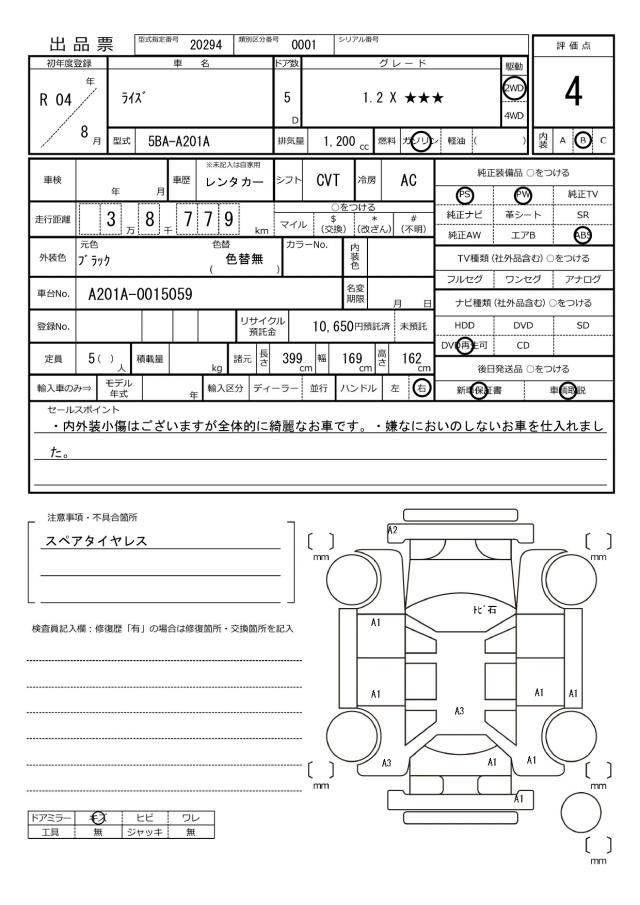 出品票 型式指定番号 20294 類別区分番号 0001 シリアル番号
評価点
4
内装 A B C
初年度登録 車名 ドア数 グレード 駆動
R 04 年 8 月
ライズ 5 D 1.2 X ★★★ 2WD
4WD
型式 5BA-A201A 排気量 1,200 cc 燃料 ガソリン 軽油 ( )
車検 年 月 車歴 ※未記入は自家用 レンタカー シフト CVT 冷房 AC
走行距離 3 万 8 千 7 7 9 km
○をつける
マイル $(交換) *(改ざん) #(不明)
外装色 元色 ブラック 色替 ( 色替無 ) カラーNo. 内装色
車台No. A201A-0015059 名変期限 月 日
登録No. リサイクル預託金 10,650円預託済 未預託
定員 5 ( ) 人 積載量 kg 諸元 長さ 399 cm 幅 169 cm 高さ 162 cm
輸入車のみ⇒ モデル年式 年 輸入区分 ディーラー 並行 ハンドル 左 右
純正装備品 ○をつける
PS PW 純正TV
純正ナビ 革シート SR
純正AW エアB ABS
TV種類(社外品含む)○をつける
フルセグ ワンセグ アナログ
ナビ種類(社外品含む)○をつける
HDD DVD SD
DVD再生可 CD
後日発送品 ○をつける
新車保証書 車輌取説
セールスポイント
・内外装小傷はございますが全体的に綺麗なお車です。・嫌なにおいのしないお車を仕入れまし
た。
注意事項・不具合箇所
スペアタイヤレス
検査員記入欄：修復歴「有」の場合は修復箇所・交換箇所を記入
ドアミラー キズ ヒビ ワレ
工具 無 ジャッキ 無
A2
mm mm
トビ石
A1
A1 A1 A1
A3
A3 A1 A1
mm mm
A1
mm